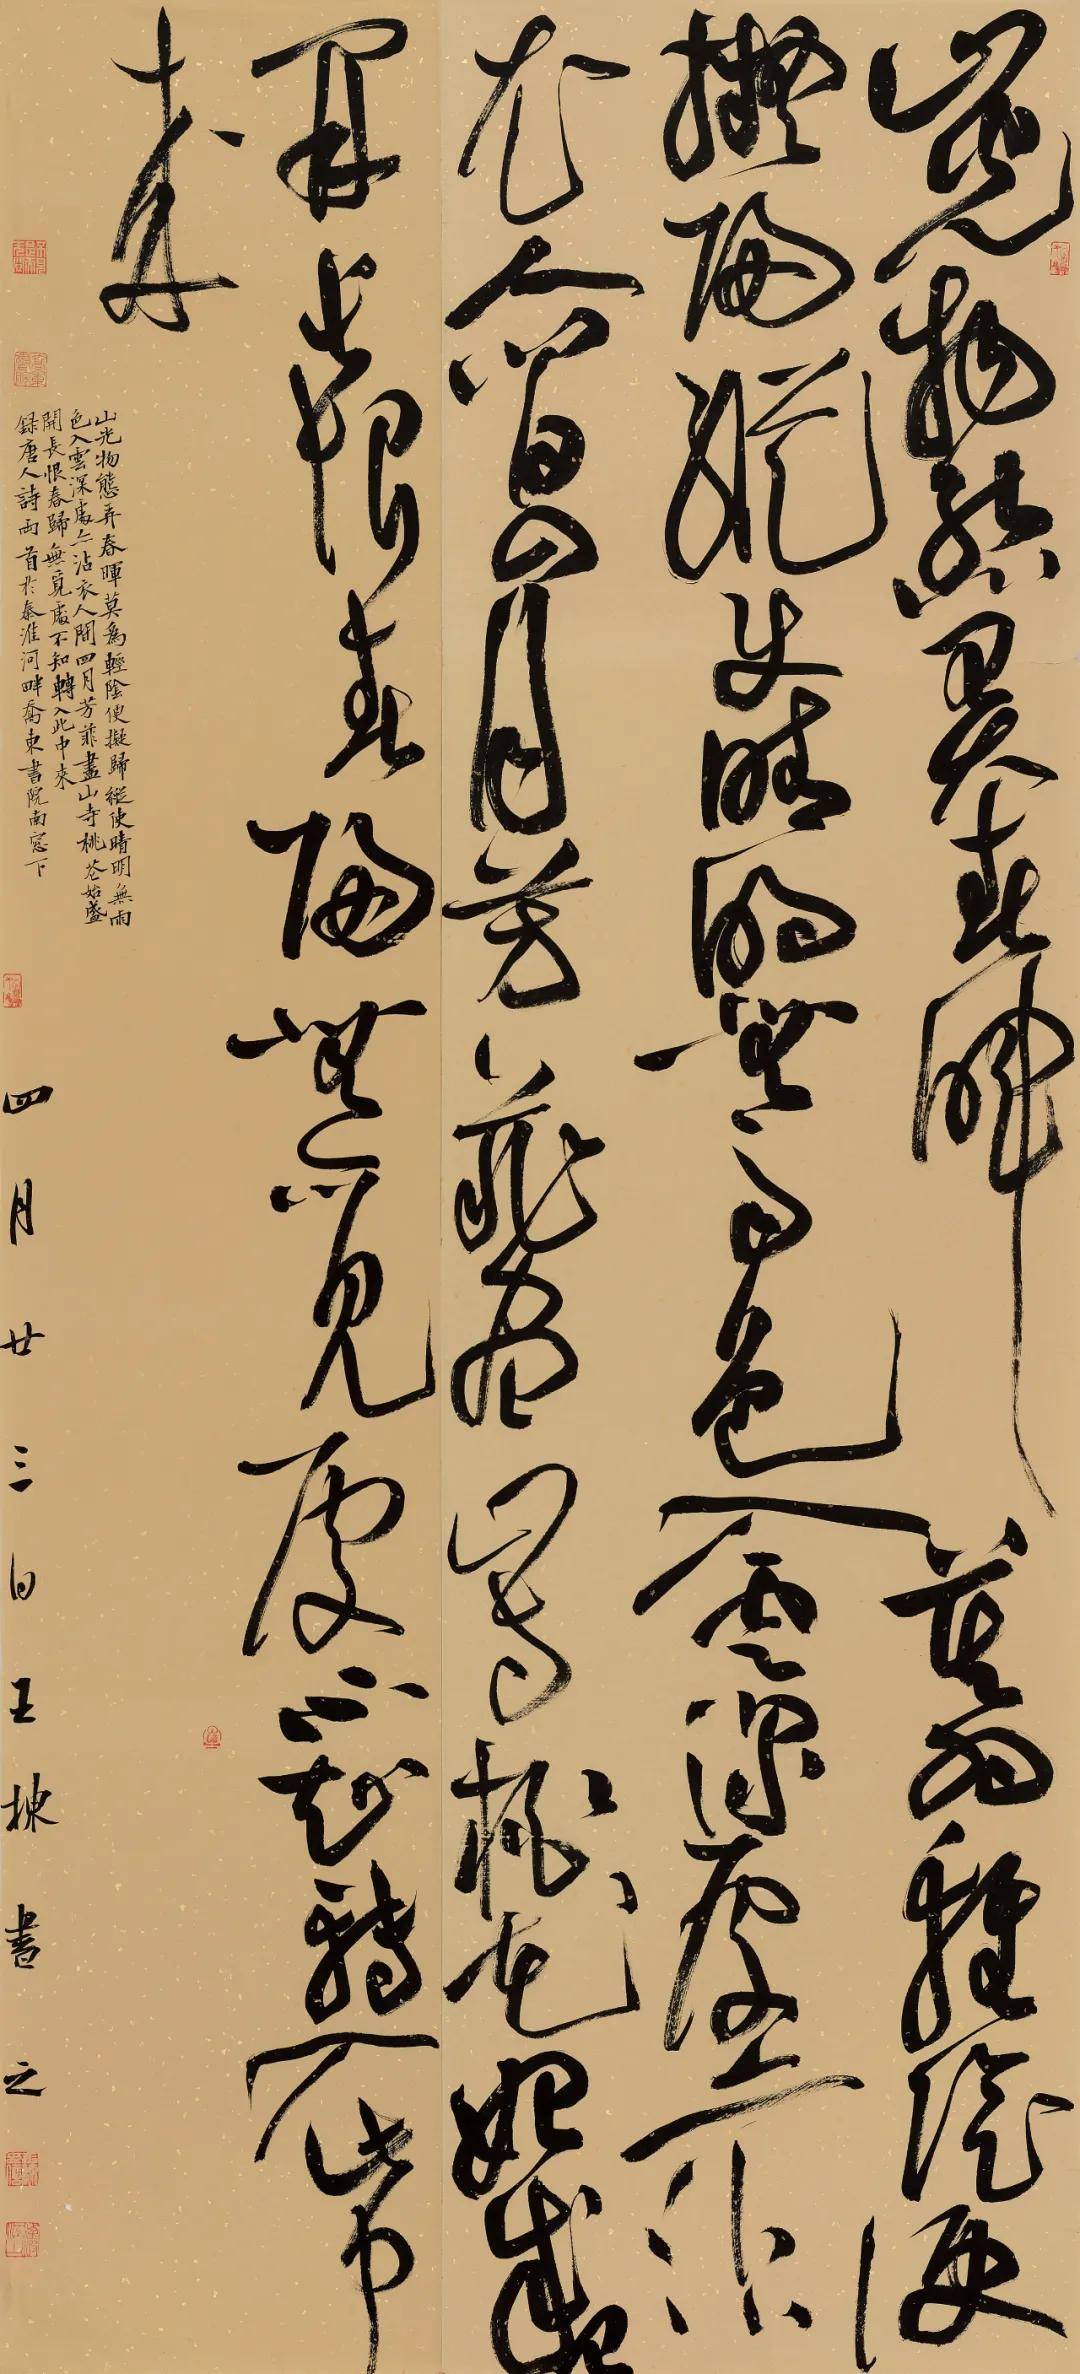 山光物態弄春暉莫為輕陰便
擬歸縱使晴明無雨色入雲深處亦沾
衣人間四月芳菲盡山寺桃花始盛
開長恨春歸無覓處不知轉入此中
來
山光物態弄春暉莫為輕陰便擬歸縱使晴明無雨
色入雲深處亦沾衣人間四月芳菲盡山寺桃花始盛
開長恨春歸無覓處不知轉入此中來
錄唐人詩兩首於秦淮河畔喬東書院南窗下
四月廿三日王棟書之